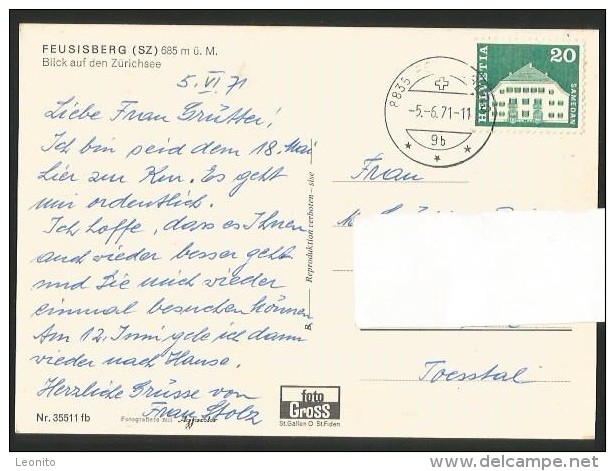 FEUSISBERG (SZ) 685 m ü. M.
Blick auf den Zürichsee
5. VI 71
Liebe Frau Grütter!
Ich bin seid dem 18. Mai
hier zur Kur. Es geht
mir ordentlich.
Ich hoffe, dass es Ihnen
auch wieder besser geht
und Sie mich wieder
einmal besuchen können
Am 12. Juni gehe ich dann
wieder nach Hause.
Herzliche Grüsse von
Frau Stolz
Nr. 35511 fb
Fotografiert mit Agfacolor
B, Reproduktion verboten
foto
GROSS
St.Gallen O St.Fiden
8835
-5.-6.71-11
9b
HELVETIA
20
SAMEDAN
Frau
Toesstal
Leonito
www.delcampe.net